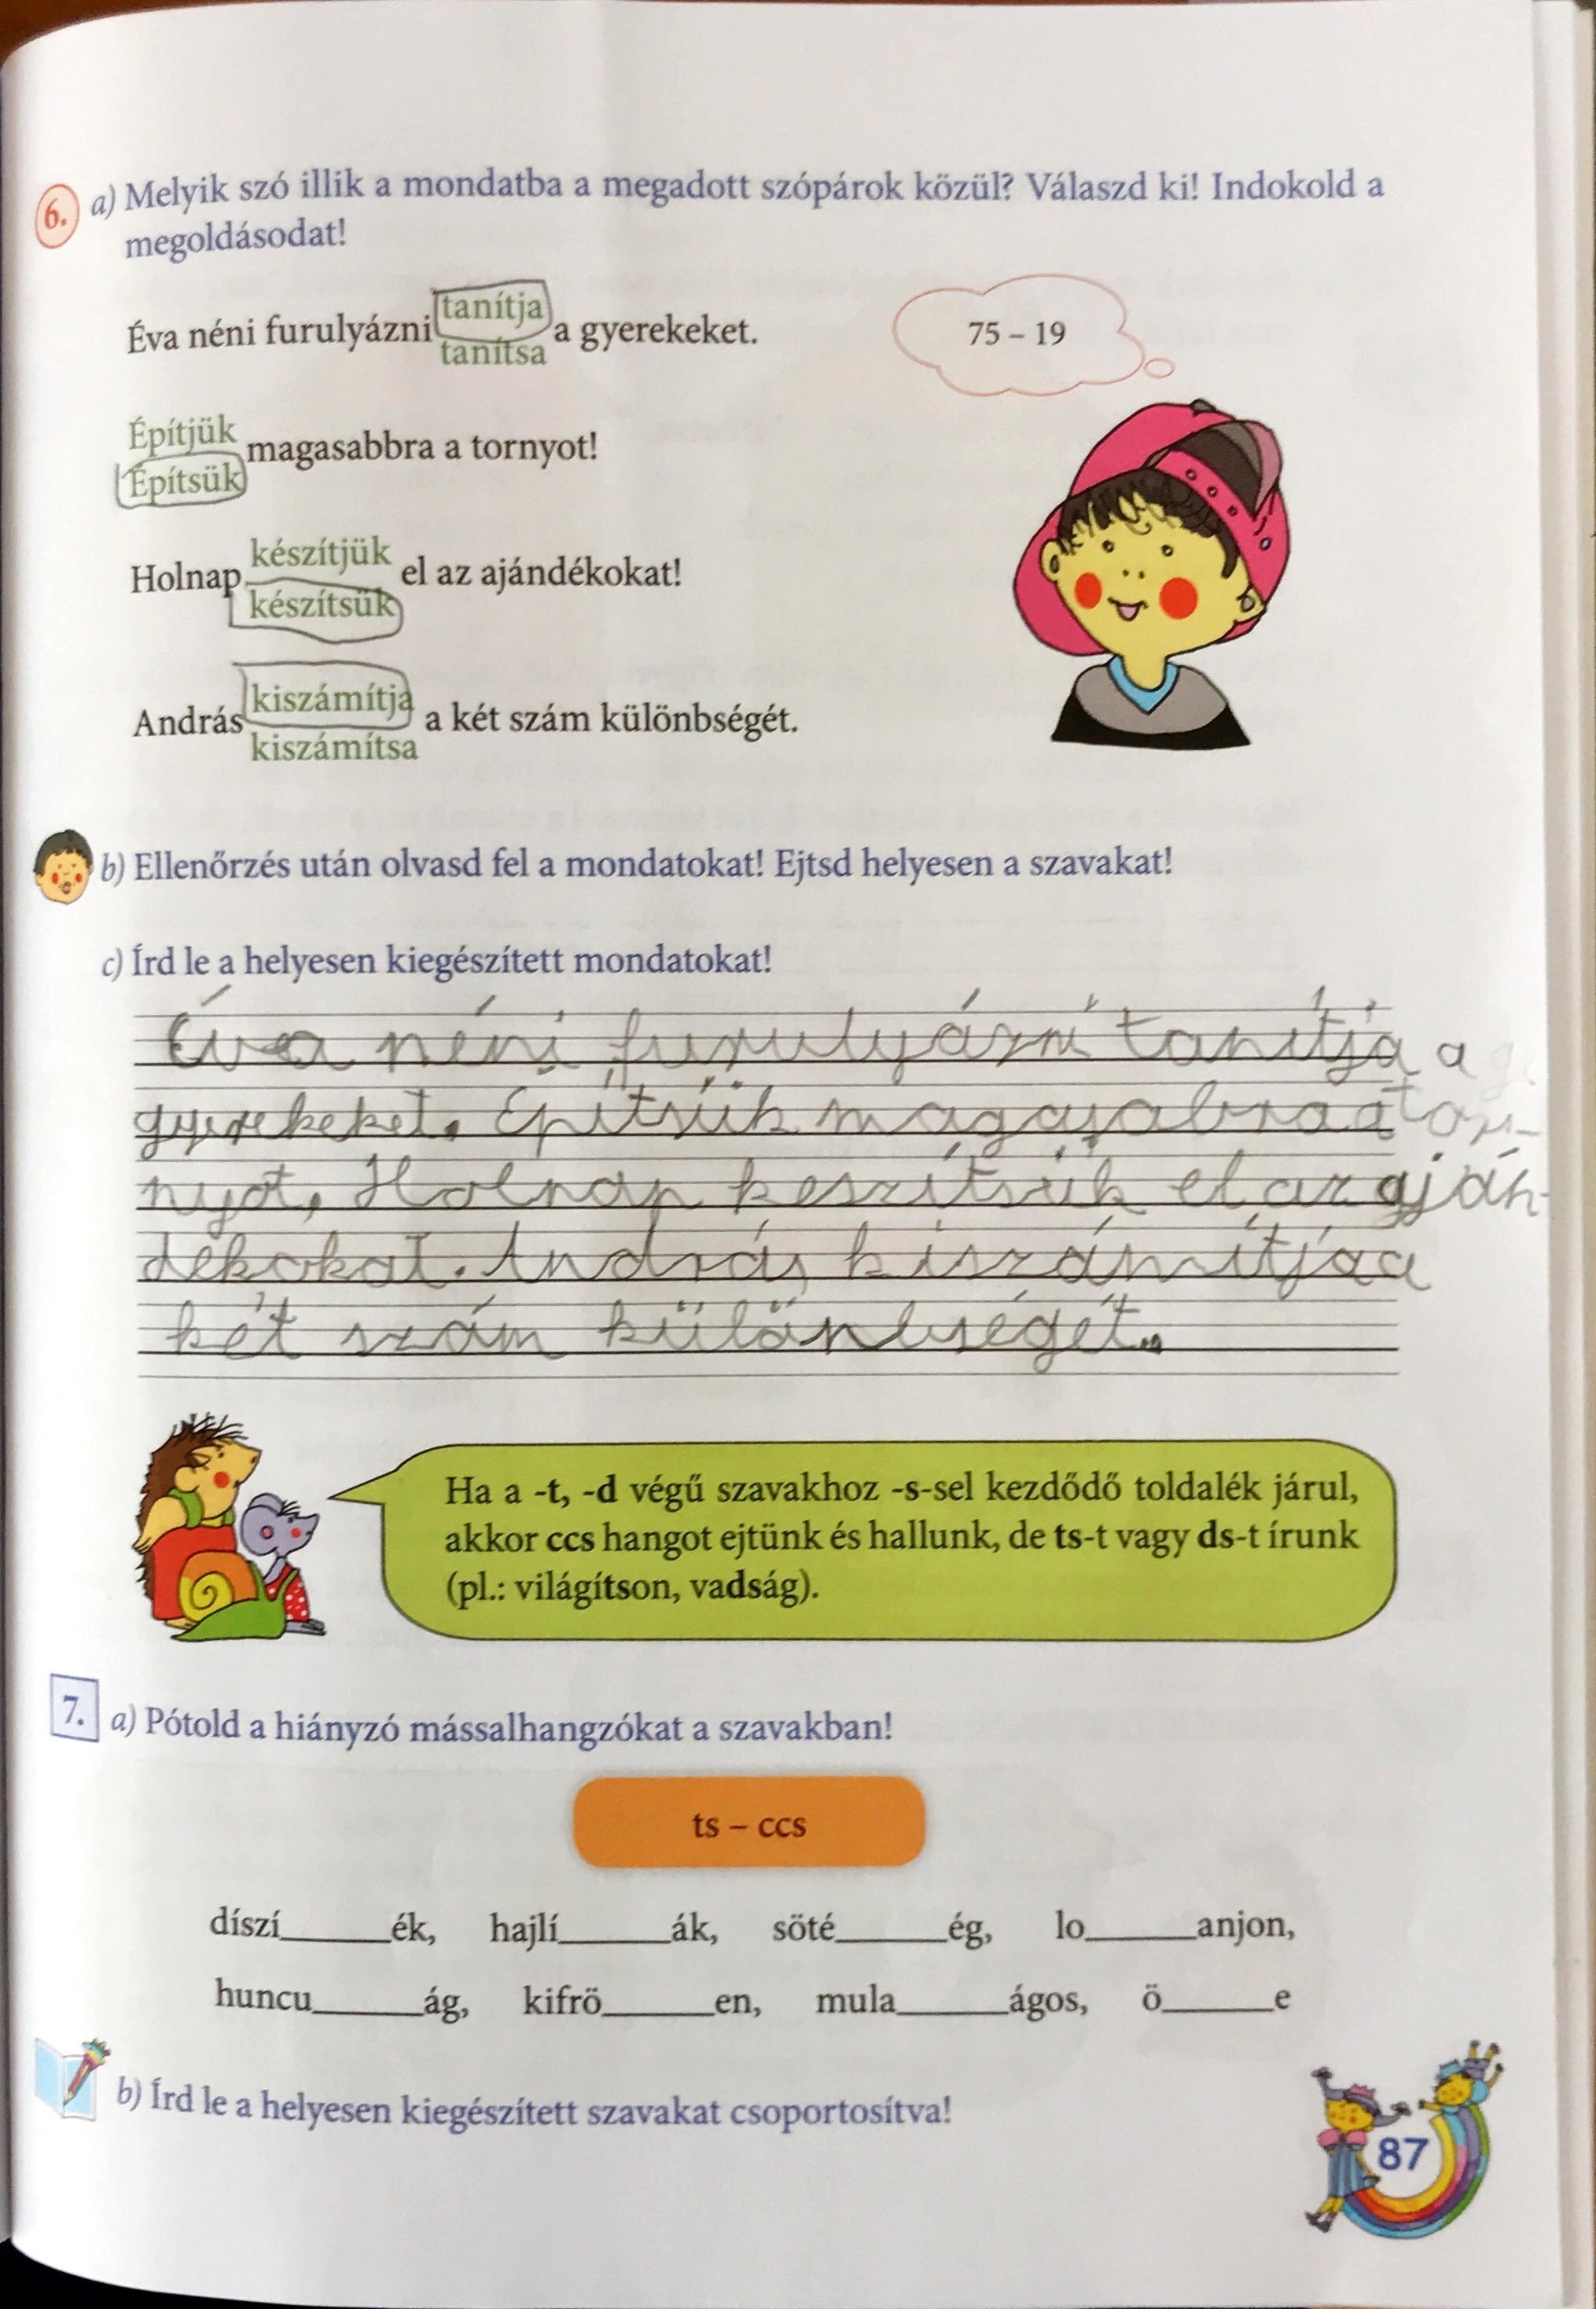 6. a) Melyik szó illik a mondatba a megadott szópárok közül? Válaszd ki! Indokold a
megoldásodat!
Éva néni furulyázni tanítja a gyerekeket.
tanítsa
75 – 19
Építjük magasabbra a tornyot!
Építsük
Holnap készítjük el az ajándékokat!
készítsük
András kiszámítja a két szám különbségét.
kiszámítsa
b) Ellenőrzés után olvasd fel a mondatokat! Ejtsd helyesen a szavakat!
c) Írd le a helyesen kiegészített mondatokat!
Éva néni furulyázni tanítja a
gyerekeket. Építsük a tor-
nyot, Holnap készítsük el az aján-
dékokat. András kiszámítja a
két szám különbségét.
Ha a -t, -d végű szavakhoz -s-sel kezdődő toldalék járul,
akkor ccs hangot ejtünk és hallunk, de ts-t vagy ds-t írunk
(pl.: világítson, vadság).
7. a) Pótold a hiányzó mássalhangzókat a szavakban!
ts – ccs
díszí______ék, hajlí______ák, söté______ég, lo______anjon,
huncu______ág, kifrö______en, mula______ágos, ö______e
b) Írd le a helyesen kiegészített szavakat csoportosítva!
87